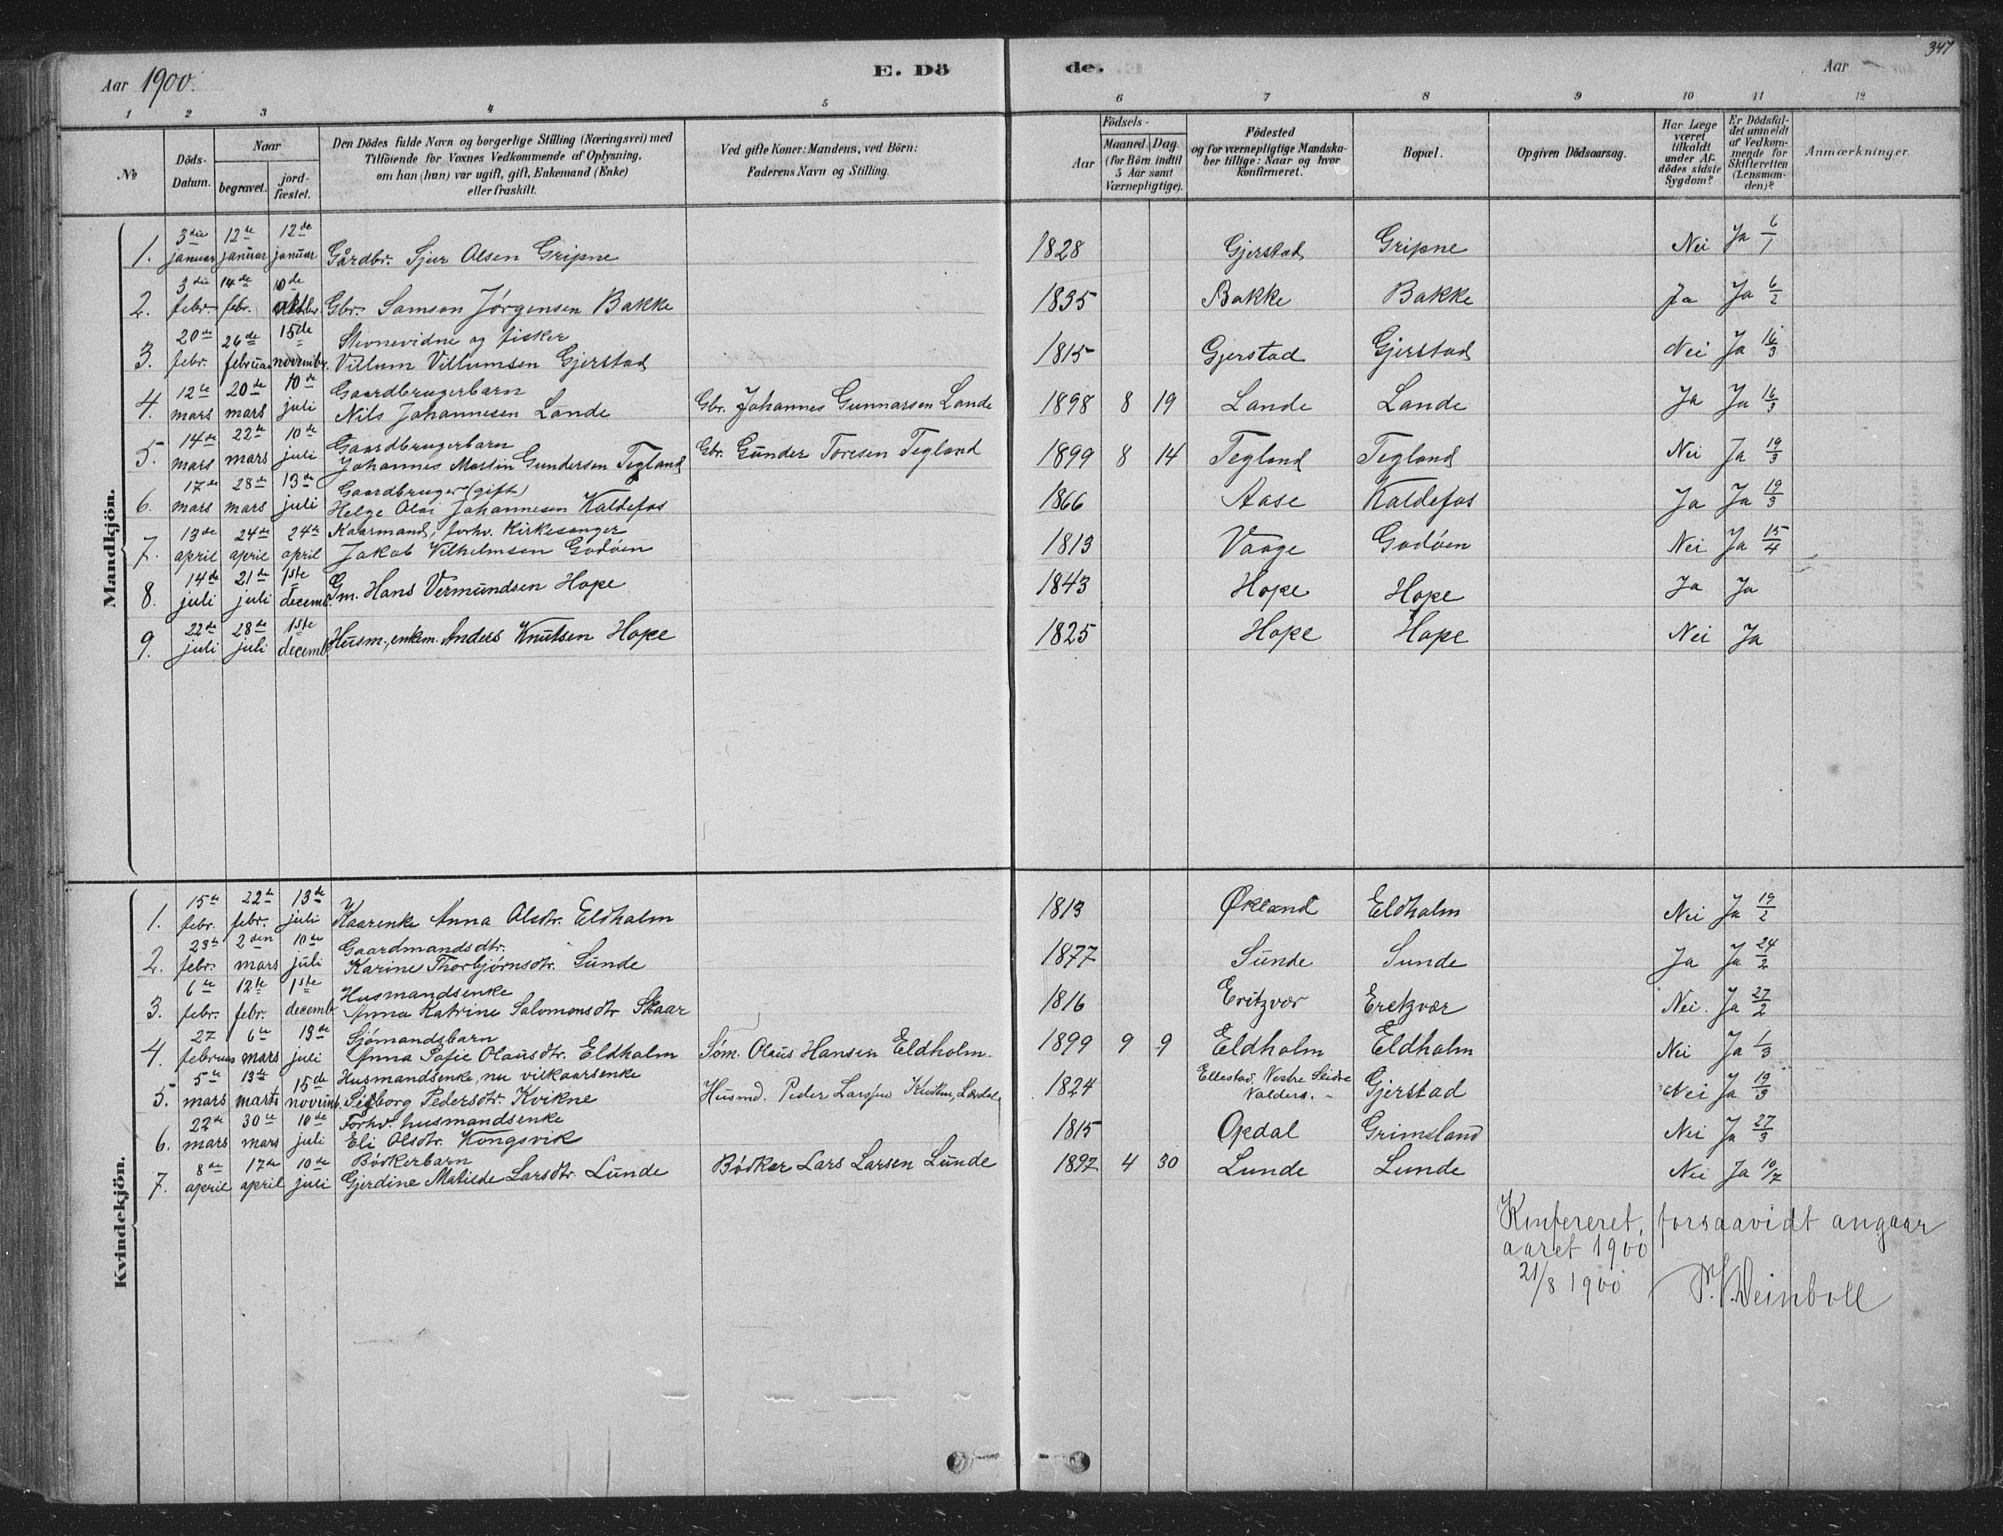 347
Aar 1900.
E. Dö
de.
Aar
1 2 3 4 5 6 7 8 9 10 11 12
№
Döds-Datum.
Naar
begravet.
jord-fæstet.
Den Dödes fulde Navn og borgerlige Stilling (Næringsvei) med
Tilföiende for Voxnes Vedkommende af Oplysning,
om han (hun) var ugift, gift, Enkemand (Enke)
eller fraskilt.
Ved gifte Koner: Mandens, ved Börn:
Faderens Navn og Stilling.
Födsels-
Aar
Maaned Dag.
(for Börn indtil
5 Aar samt
Værnepligtige).
Födested
og for værnepligtige Mandska-
ber tillige: Naar og hvor
konfirmeret.
Bopæl.
Opgiven Dödsaarsag.
Har Læge
været
tilkaldt
under Af-
dödes sidste
Sygdom?
Er Dödsfal-
det anmeldt
af Vedkom-
mende for
Skifteretten
(Lensman-
den)?
Anmærkninger.
Mandkjön.
1. 3die januar 12te januar 12de januar Gårdbr. Sjur Olsen Gripne 1828 Gjerstad Gripne Nei Ja 6/1
2. 3die febr. 14de febr. 10de Gbr. Samson Jørgensen Bakke 1835 Bakke Bakke Ja Ja 6/2
3. 20de febr. 26de februar 15de novembr. Stevnevidne og fisker
Villum Villumsen Gjerstad 1815 Gjerstad Gjerstad Nei Ja 16/3
4. 12te mars 20de mars 10de juli Gaardbrugerbarn
Nils Johannesen Lande Gbr. Johannes Gunnarsen Lande 1898 8 19 Lande Lande Ja Ja 16/3
5. 14de mars 22de mars 10de juli Gaardbrugerbarn
Johannes Martin Gundersen Tegland Gbr. Gunder Toresen Tegland 1899 8 14 Tegland Tegland Nei Ja 19/3
6. 17de mars 28de mars 13de juli Gaardbruger (gift)
Helge Olai Johannesen Kaldefos 1866 Aase Kaldefos Ja Ja 19/3
7. 13de april 24de april 24de april Kaarmand, forhv. Kirkesanger
Jakob Vilhelmsen Godøen 1813 Vaage Godøen Nei Ja 15/4
8. 14de juli 21de juli 1ste decemb. Gm. Hans Vermundsen Hope 1843 Hope Hope Ja Ja
9. 22de juli 28de juli 1ste decemb. Husm., enkm. Anders Knutsen Hope 1825 Hope Hope Nei Ja
Kvindekjön.
1. 15de febr. 22de febr. 13de juli Kaarenke Anna Olsdtr. Eldholm 1813 Økland Eldholm Nei Ja 19/2
2. 23de febr. 2den mars 10de juli Gaardmandsdtr.
Karine Thorbjørnsdtr. Sunde 1877 Sunde Sunde Ja Ja 24/2
3. 6te febr. 12te febr. 1ste decemb. Husmandsenke
Anna Katrine Salomonsdtr Skaar 1816 Eritzvær Eretzvær Nei. Ja 27/2
4. 27 februar 6te mars 13de juli Sjømandsbarn
Anna Sofie Olausdtr. Eldholm Søm. Olaus Hansen Eldholm. 1899 9 9 Eldholm Eldholm Nei Ja 1/3
5. 5te mars 13de marts 15de novemb. Husmandsenke, nu vilkaarsenke
Sigborg Pedersdtr. Kvikne Husmd. Peder Larsen Kvikne, Lærdal 1824 Ellestad, Vestre Slidre
Valders. Gjerstad Nei Ja 19/3
6. 22de mars 30te mars 10de juli Forhv. husmandsenke
Eli Olsdtr. Kongsvik 1815 Opdal Grimsland Nei Ja 27/3
7. 8de april 17de april 10de juli Bødkerbarn
Gjerdine Matilde Larsdtr. Lunde Bødker Lars Larsen Lunde 1897 4 30 Lunde Lunde Nei Ja 10/7
Konfereret, forsaavidt angaar
aaret 1900
21/8 1900 Weinboll